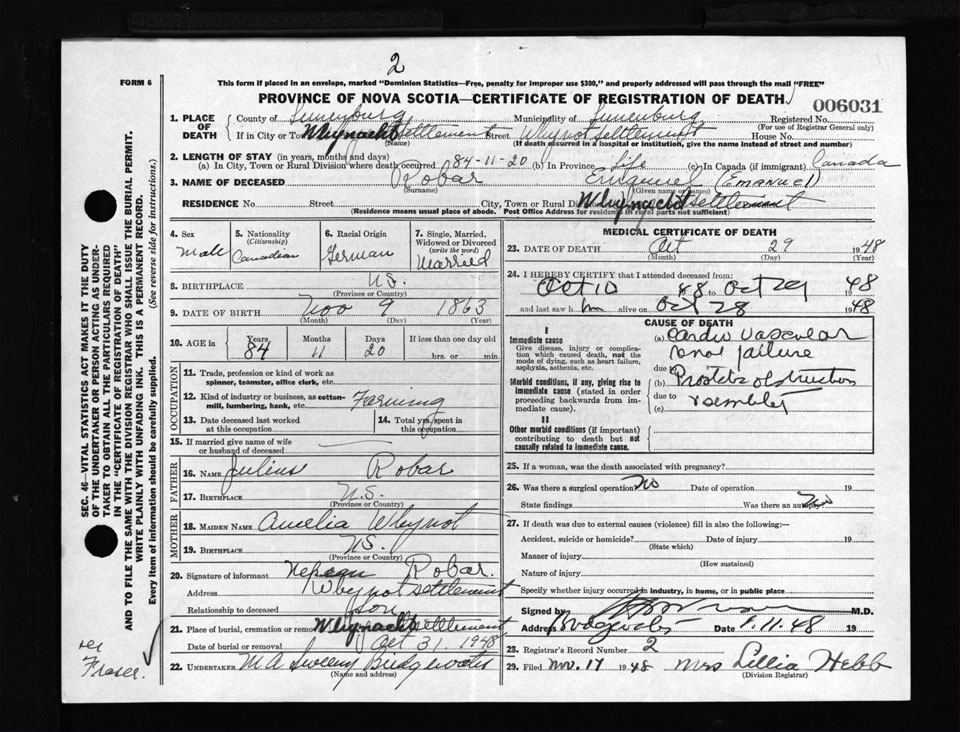 2
FORM 6
This form if placed in an envelope, marked "Dominion Statistics—Free, penalty for improper use $300," and properly addressed will pass through the mail "FREE"
PROVINCE OF NOVA SCOTIA—CERTIFICATE OF REGISTRATION OF DEATH
006031
1. PLACE OF DEATH
County of Lunenburg Municipality of Lunenburg Registered No.
(For use of Registrar General only)
If in City or Town Whynacht Settlement Street Whynot Settlement House No.
(Name) (If death occurred in a hospital or institution, give the name instead of street and number)
2. LENGTH OF STAY (in years, months and days)
(a) In City, Town or Rural Division where death occurred 84-11-20 (b) In Province Life (c) In Canada (if immigrant) Canada
3. NAME OF DECEASED Robar (Emanuel)
(Surname) (Given name or names)
RESIDENCE No. Street City, Town or Rural Division Whynacht Settlement
(Residence means usual place of abode. Post Office Address for residents in rural parts not sufficient)
4. Sex Male
5. Nationality (Citizenship) Canadian
6. Racial Origin German
7. Single, Married, Widowed or Divorced (write the word) Married
8. BIRTHPLACE N.S.
(Province or Country)
9. DATE OF BIRTH Nov 9 1863
(Month) (Day) (Year)
10. AGE in Years Months Days If less than one day old
84 11 20 hrs. or min.
OCCUPATION
11. Trade, profession or kind of work as spinner, teamster, office clerk, etc.
12. Kind of industry or business, as cotton-mill, lumbering, bank, etc. Farming
13. Date deceased last worked at this occupation
14. Total yrs. spent in this occupation
15. If married give name of wife or husband of deceased
FATHER
16. NAME Julius Robar
17. BIRTHPLACE N.S.
(Province or Country)
MOTHER
18. MAIDEN NAME Amelia Whynot
19. BIRTHPLACE N.S.
(Province or Country)
20. Signature of informant Robar.
Address Whynot Settlement
Relationship to deceased Son
21. Place of burial, cremation or removal Whynacht Settlement
Date of burial or removal Oct 31, 1948
22. UNDERTAKER M A Sweeny Bridgewater
(Name and address)
MEDICAL CERTIFICATE OF DEATH
23. DATE OF DEATH Oct 29 1948
(Month) (Day) (Year)
24. I HEREBY CERTIFY that I attended deceased from:
Oct 10 48 to Oct 29 1948
and last saw him alive on Oct 28 1948
CAUSE OF DEATH
I
Immediate cause
Give disease, injury or complication which caused death, not the mode of dying, such as heart failure, asphyxia, asthenia, etc.
(a) Cardio Vascular
renal failure
due to
Morbid conditions, if any, giving rise to immediate cause (stated in order proceeding backwards from immediate cause).
(b) Prostatic obstruction
due to
(c)
II
Other morbid conditions (if important) contributing to death but not causally related to immediate cause.
25. If a woman, was the death associated with pregnancy?
26. Was there a surgical operation? No Date of operation 19
State findings Was there an autopsy? No
27. If death was due to external causes (violence) fill in also the following:—
Accident, suicide or homicide? Date of injury 19
(State which)
Manner of injury
(How sustained)
Nature of injury
Specify whether injury occurred in industry, in home, or in public place
Signed by M.D.
Address Bridgewater Date 9.11.48 19
28. Registrar's Record Number 2
29. Filed Nov. 17 1948 Mrs Lillia Hebb
(Division Registrar)
SEC. 46—VITAL STATISTICS ACT MAKES IT THE DUTY
OF THE UNDERTAKER OR PERSON ACTING AS UNDERTAKER TO OBTAIN ALL THE PARTICULARS REQUIRED
IN THE "CERTIFICATE OF REGISTRATION OF DEATH"
AND TO FILE THE SAME WITH THE DIVISION REGISTRAR WHO SHALL ISSUE THE BURIAL PERMIT.
WRITE PLAINLY WITH UNFADING INK. THIS IS A PERMANENT RECORD.
Every item of information should be carefully supplied. (See reverse side for instructions.)
Fraser.